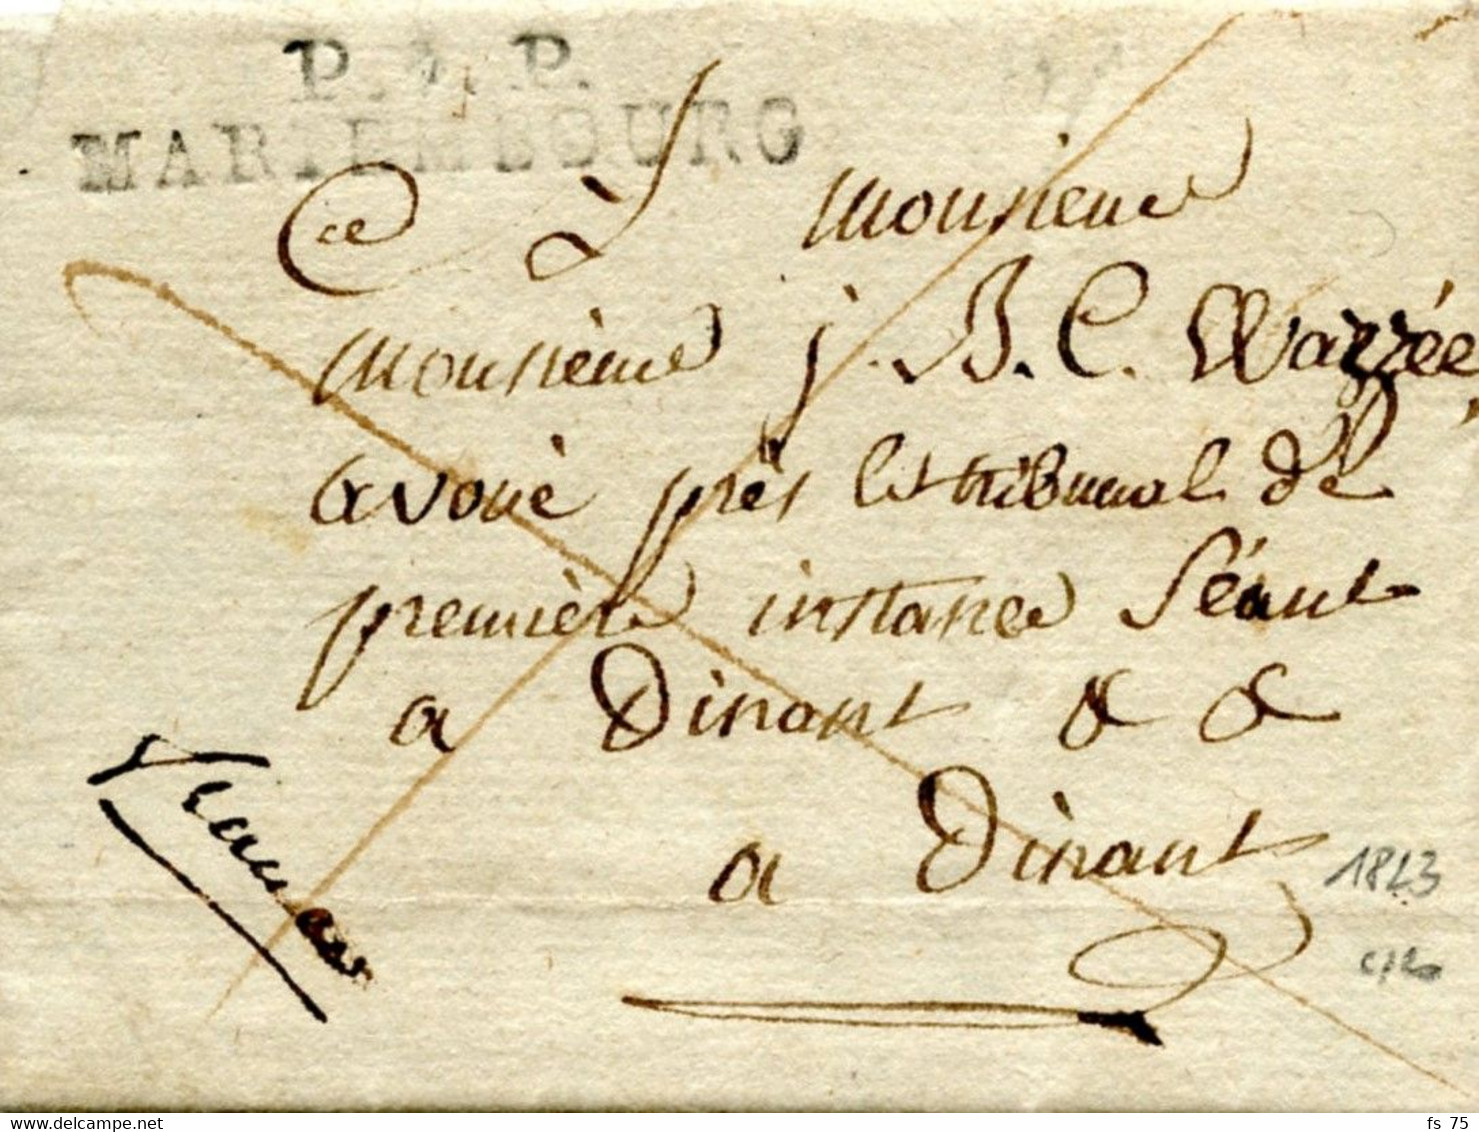 P. P.
MARIEMBOURG
Monsieur
Monsieur j. B. C. Wazzée
avoué près le tribunal de
première instance Séant
a Dinant & &
a Dinant
franco
1823
delcampe.net
fs_75